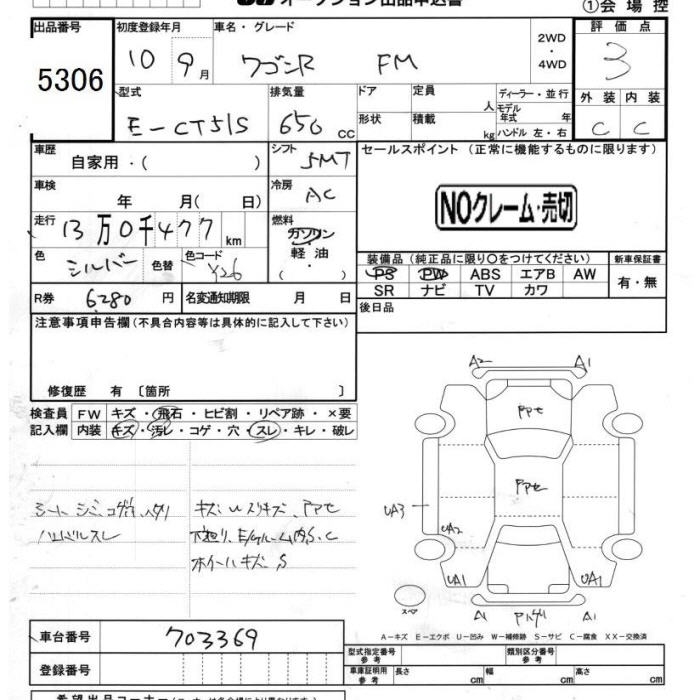 オークション出品申込書
①会場控
出品番号 初度登録年月 車名・グレード 評価点
5306
10 9月 ワゴンR FM 2WD・4WD 3
型式 排気量 ドア 定員 人 ディーラー・並行 外装 内装
E-CT51S 650cc 形状 積載 kg モデル年式 年 ハンドル 左・右 C C
車歴 シフト セールスポイント(正常に機能するものに限ります)
自家用・( ) 5MT
車検 冷房
年 月( 日) AC
NOクレーム・売切
走行 燃料
13万0千477km ガソリン
軽油
( ・ )
色 シルバー 色替 色コード Y26
装備品(純正品に限り○をつけてください) 新車保証書
PS PW ABS エアB AW 有・無
SR ナビ TV カワ
R券 6280円 名変通知期限 月 日
後日品
注意事項申告欄(不具合内容等は具体的に記入して下さい)
修復歴 有〔箇所 〕
検査員 FW キズ・飛石・ヒビ割・リペア跡・×要
記入欄 内装 キズ・汚レ・コゲ・穴・スレ・キレ・破レ
シート シミ、コゲ穴、
ハンドルスレ
キズ U スリキズ、
下廻り、E/gルーム内S、C
ホイールキズ、S
A2 A1
UA3 UA2
UA1 UA1
スペア
A1 A1
A-キズ E-エクボ U-凹み W-補修跡 S-サビ C-腐食 XX-交換済
車台番号 703369
登録番号
型式指定番号 参考 類別区分番号 参考
車庫証明用 参考 長さ cm 幅 cm 高さ cm
希望出品コーナー